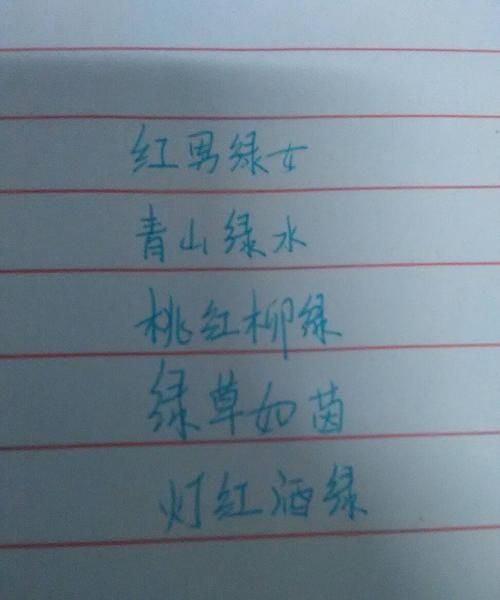 红男绿女
青山绿水
桃红柳绿
绿草如茵
灯红酒绿